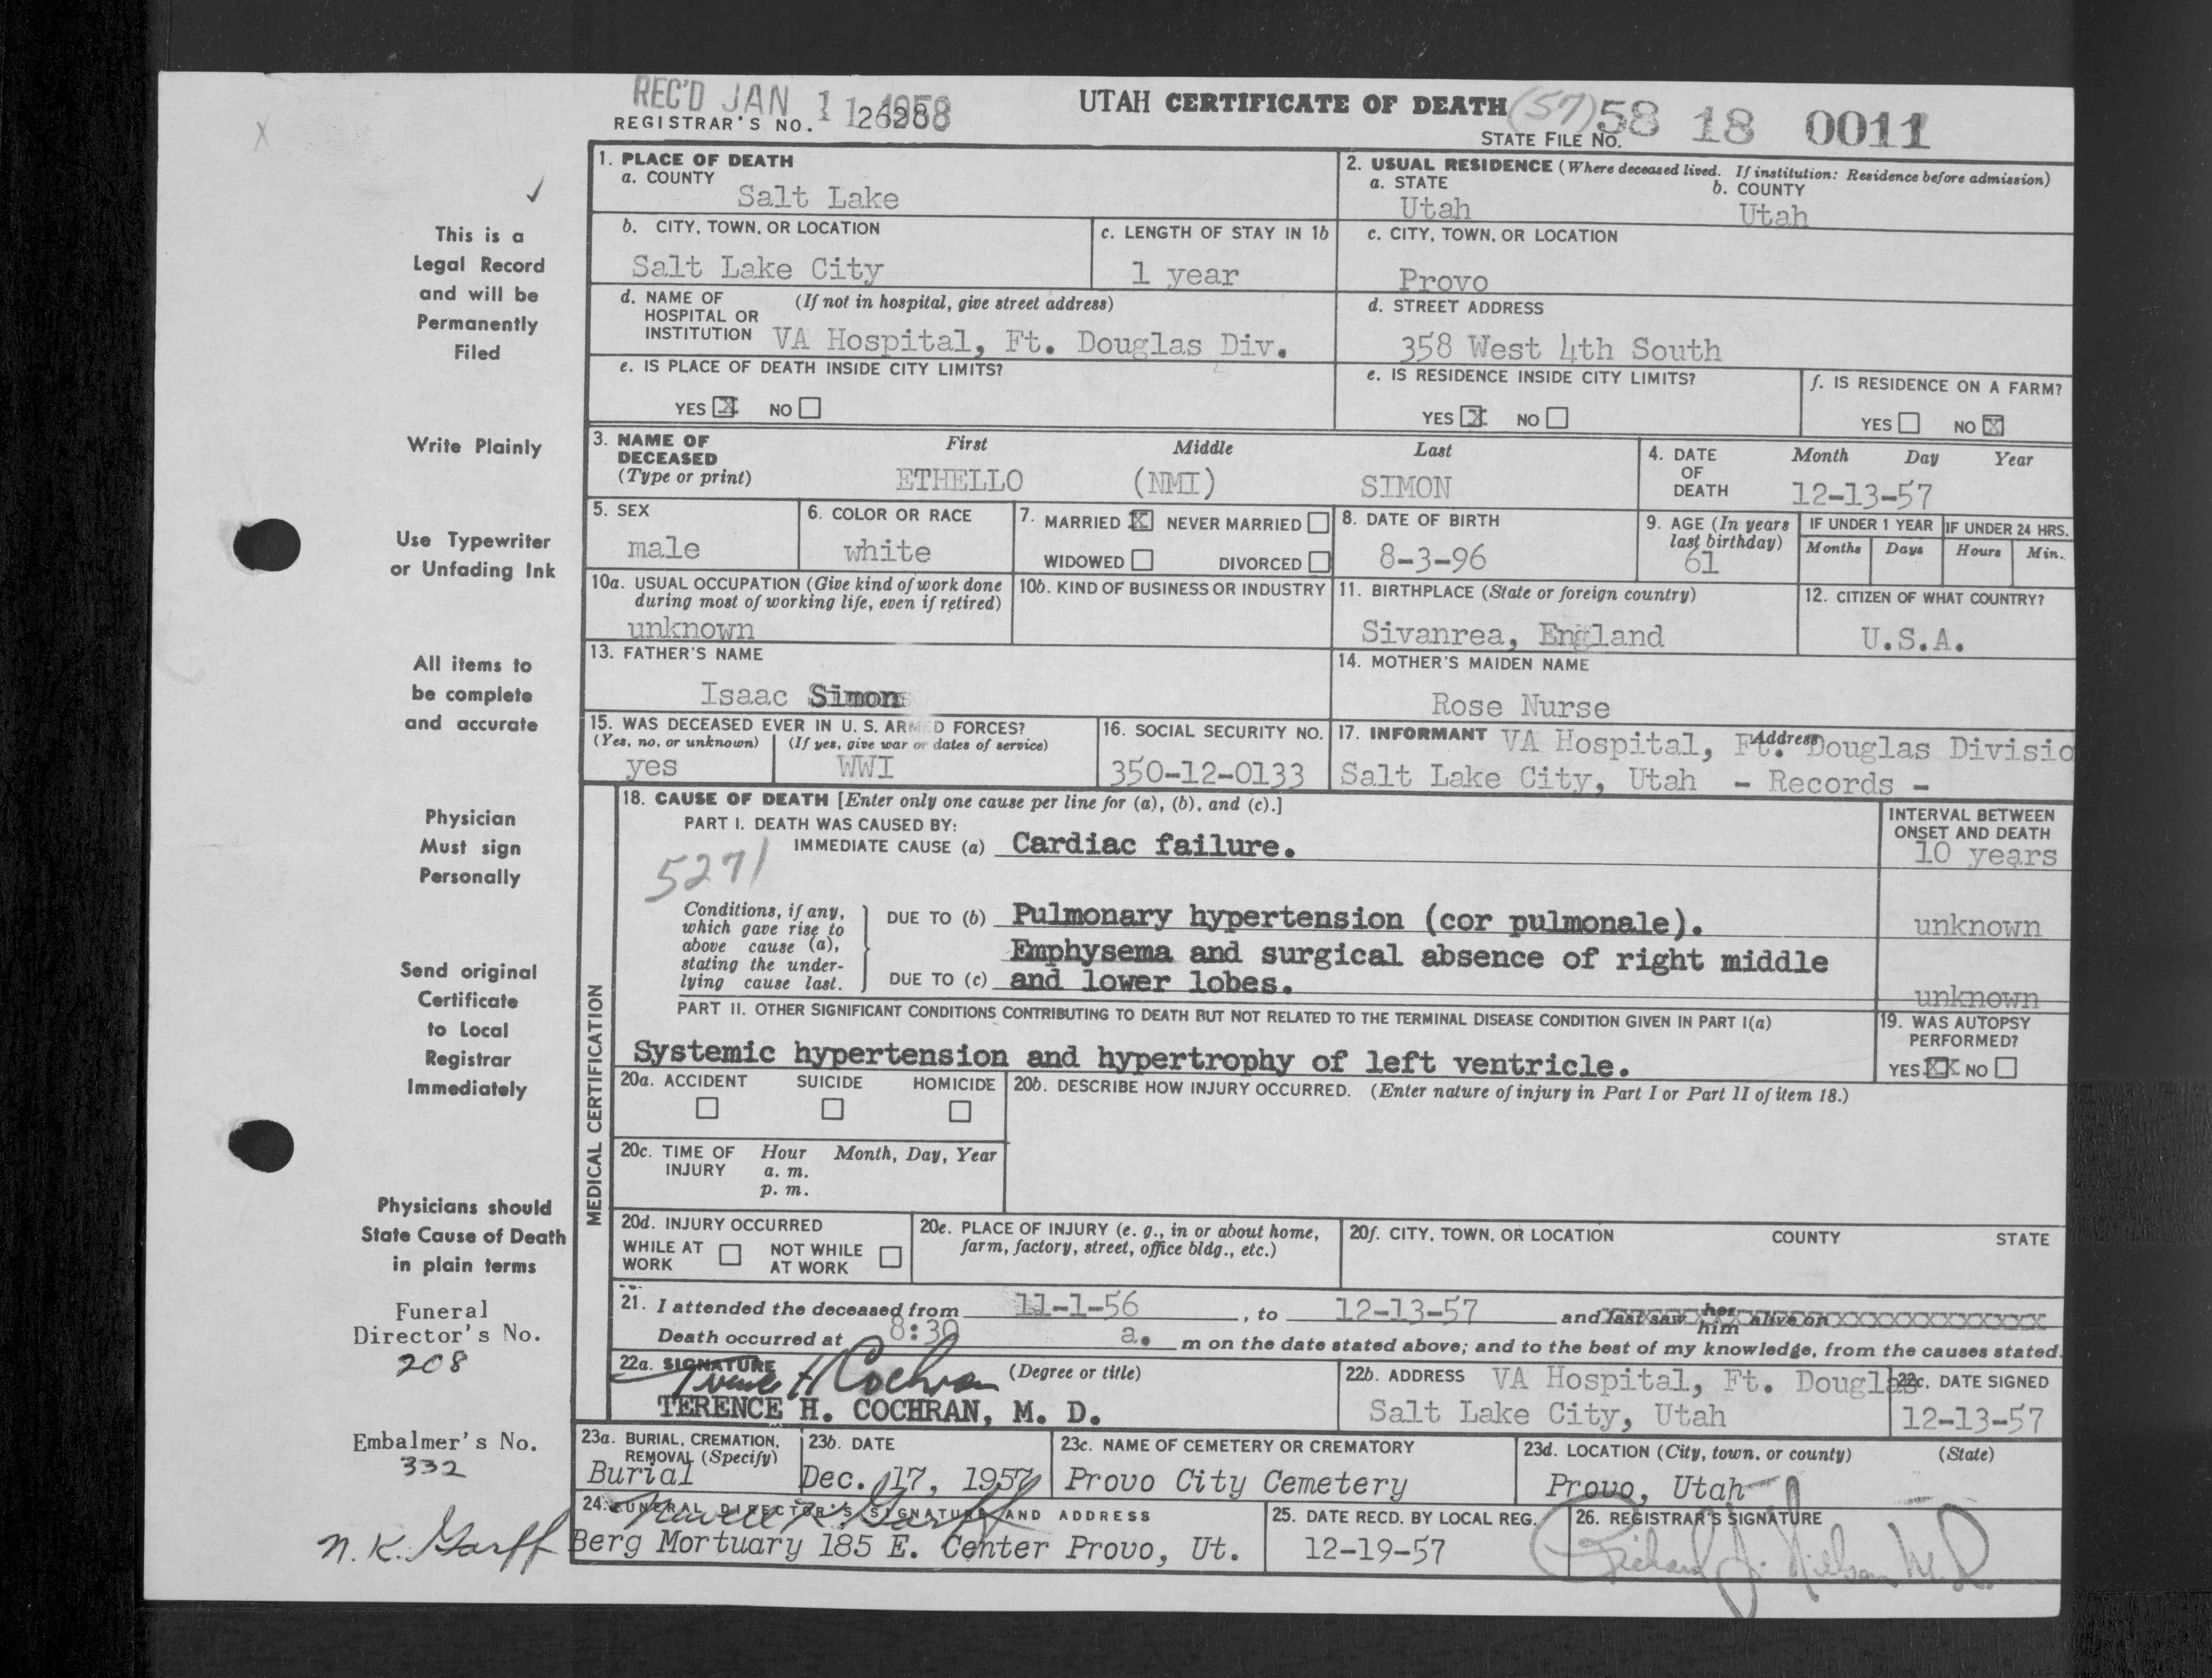 REC'D JAN 11 1958
REGISTRAR'S NO.
UTAH CERTIFICATE OF DEATH (57) 58 18 0011
STATE FILE NO.
This is a
Legal Record
and will be
Permanently
Filed
Write Plainly
Use Typewriter
or Unfading Ink
All items to
be complete
and accurate
Physician
Must sign
Personally
Send original
Certificate
to Local
Registrar
Immediately
Physicians should
State Cause of Death
in plain terms
Funeral
Director's No.
208
Embalmer's No.
332
N. K. Garff
1. PLACE OF DEATH
a. COUNTY
Salt Lake
2. USUAL RESIDENCE (Where deceased lived. If institution: Residence before admission)
a. STATE b. COUNTY
Utah Utah
b. CITY, TOWN, OR LOCATION
Salt Lake City
c. LENGTH OF STAY IN 1b
1 year
c. CITY, TOWN, OR LOCATION
Provo
d. NAME OF (If not in hospital, give street address)
HOSPITAL OR
INSTITUTION VA Hospital, Ft. Douglas Div.
d. STREET ADDRESS
358 West 4th South
e. IS PLACE OF DEATH INSIDE CITY LIMITS?
YES X NO
e. IS RESIDENCE INSIDE CITY LIMITS?
YES X NO
f. IS RESIDENCE ON A FARM?
YES NO X
3. NAME OF First Middle Last
DECEASED
(Type or print) ETHELLO (NMI) SIMON
4. DATE Month Day Year
OF
DEATH 12-13-57
5. SEX
male
6. COLOR OR RACE
white
7. MARRIED X NEVER MARRIED
WIDOWED DIVORCED
8. DATE OF BIRTH
8-3-96
9. AGE (In years
last birthday)
61
IF UNDER 1 YEAR IF UNDER 24 HRS.
Months Days Hours Min.
10a. USUAL OCCUPATION (Give kind of work done
during most of working life, even if retired)
unknown
10b. KIND OF BUSINESS OR INDUSTRY
11. BIRTHPLACE (State or foreign country)
Sivanrea, England
12. CITIZEN OF WHAT COUNTRY?
U.S.A.
13. FATHER'S NAME
Isaac Simon
14. MOTHER'S MAIDEN NAME
Rose Nurse
15. WAS DECEASED EVER IN U. S. ARMED FORCES?
(Yes, no, or unknown) (If yes, give war or dates of service)
yes WWI
16. SOCIAL SECURITY NO.
350-12-0133
17. INFORMANT Address
VA Hospital, Ft. Douglas Divisio
Salt Lake City, Utah - Records -
MEDICAL CERTIFICATION
18. CAUSE OF DEATH [Enter only one cause per line for (a), (b), and (c).]
PART I. DEATH WAS CAUSED BY:
IMMEDIATE CAUSE (a) Cardiac failure.
INTERVAL BETWEEN
ONSET AND DEATH
10 years
5271
Conditions, if any,
which gave rise to
above cause (a),
stating the under-
lying cause last.
DUE TO (b) Pulmonary hypertension (cor pulmonale).
unknown
Emphysema and surgical absence of right middle
DUE TO (c) and lower lobes.
unknown
PART II. OTHER SIGNIFICANT CONDITIONS CONTRIBUTING TO DEATH BUT NOT RELATED TO THE TERMINAL DISEASE CONDITION GIVEN IN PART I(a)
Systemic hypertension and hypertrophy of left ventricle.
19. WAS AUTOPSY
PERFORMED?
YES XX NO
20a. ACCIDENT SUICIDE HOMICIDE
20b. DESCRIBE HOW INJURY OCCURRED. (Enter nature of injury in Part I or Part II of item 18.)
20c. TIME OF Hour Month, Day, Year
INJURY a. m.
p. m.
20d. INJURY OCCURRED
WHILE AT NOT WHILE
WORK AT WORK
20e. PLACE OF INJURY (e. g., in or about home,
farm, factory, street, office bldg., etc.)
20f. CITY, TOWN, OR LOCATION COUNTY STATE
21. I attended the deceased from 11-1-56, to 12-13-57 and last saw her him alive on
Death occurred at 8:30 a. m on the date stated above; and to the best of my knowledge, from the causes stated.
22a. SIGNATURE (Degree or title)
Terence H Cochran
TERENCE H. COCHRAN, M. D.
22b. ADDRESS VA Hospital, Ft. Douglas
Salt Lake City, Utah
22c. DATE SIGNED
12-13-57
23a. BURIAL, CREMATION,
REMOVAL (Specify)
Burial
23b. DATE
Dec. 17, 1957
23c. NAME OF CEMETERY OR CREMATORY
Provo City Cemetery
23d. LOCATION (City, town, or county) (State)
Provo, Utah
24. FUNERAL DIRECTOR'S SIGNATURE AND ADDRESS
Berg Mortuary 185 E. Center Provo, Ut.
25. DATE RECD. BY LOCAL REG.
12-19-57
26. REGISTRAR'S SIGNATURE
Richard J. Nielson M.D.